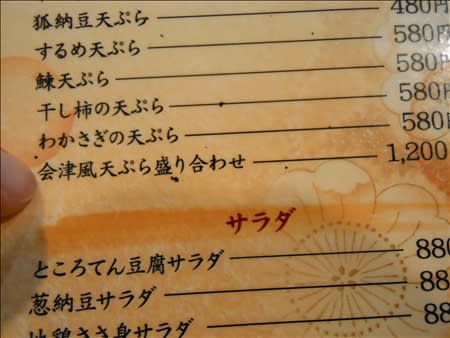 狐納豆天ぷら 480円
するめ天ぷら 580円
鰊天ぷら 580円
干し柿の天ぷら 580円
わかさぎの天ぷら 580
会津風天ぷら盛り合わせ 1,200
サラダ
ところてん豆腐サラダ 880
葱納豆サラダ 88
地鶏ささ身サラダ 88